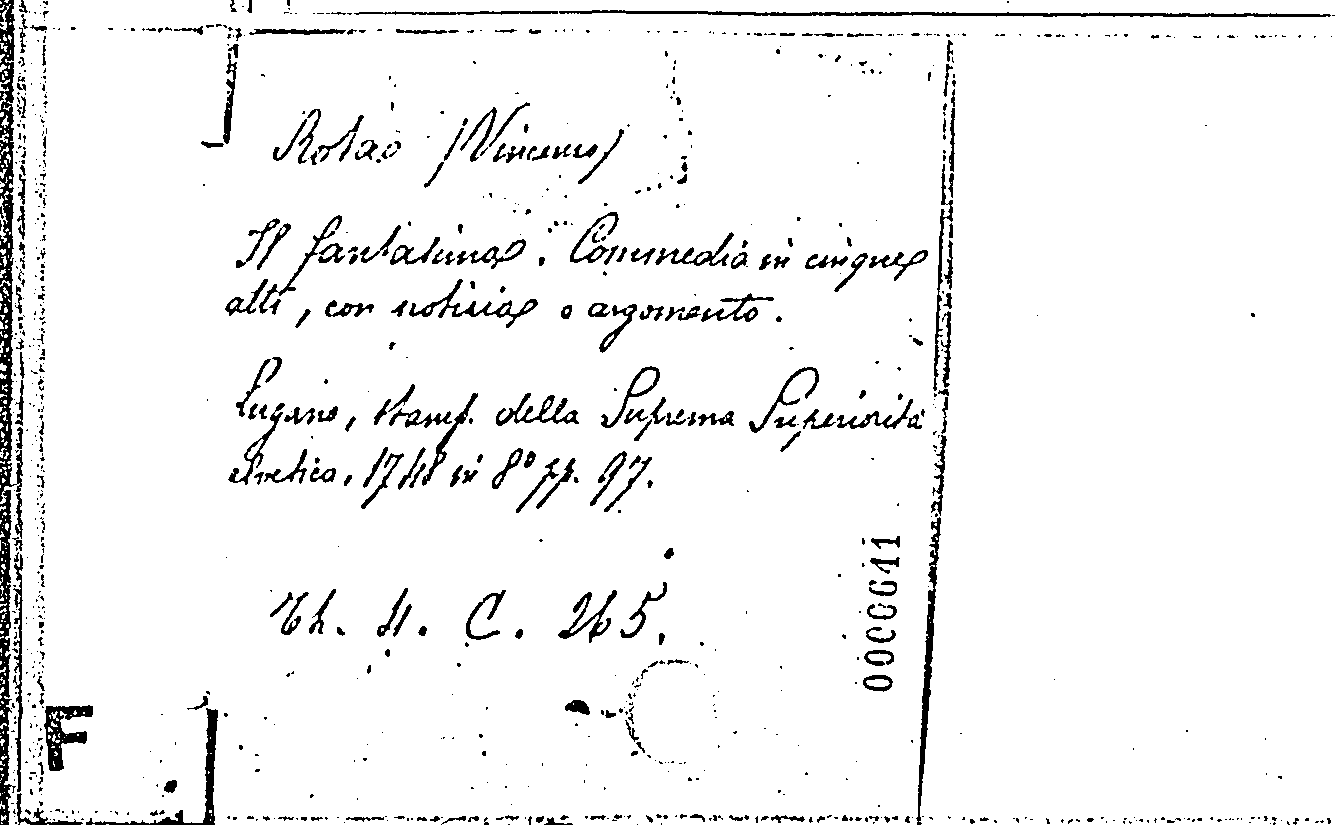 Rota (Vincenzo)
Il fantasima. Commedia in cinque
atti, con notizia e argomento.
Lugano, stamp. della Suprema Superiorità
elvetica, 1748 in 8° pp. 97.
Th. 4. C. 265.
0000641
F